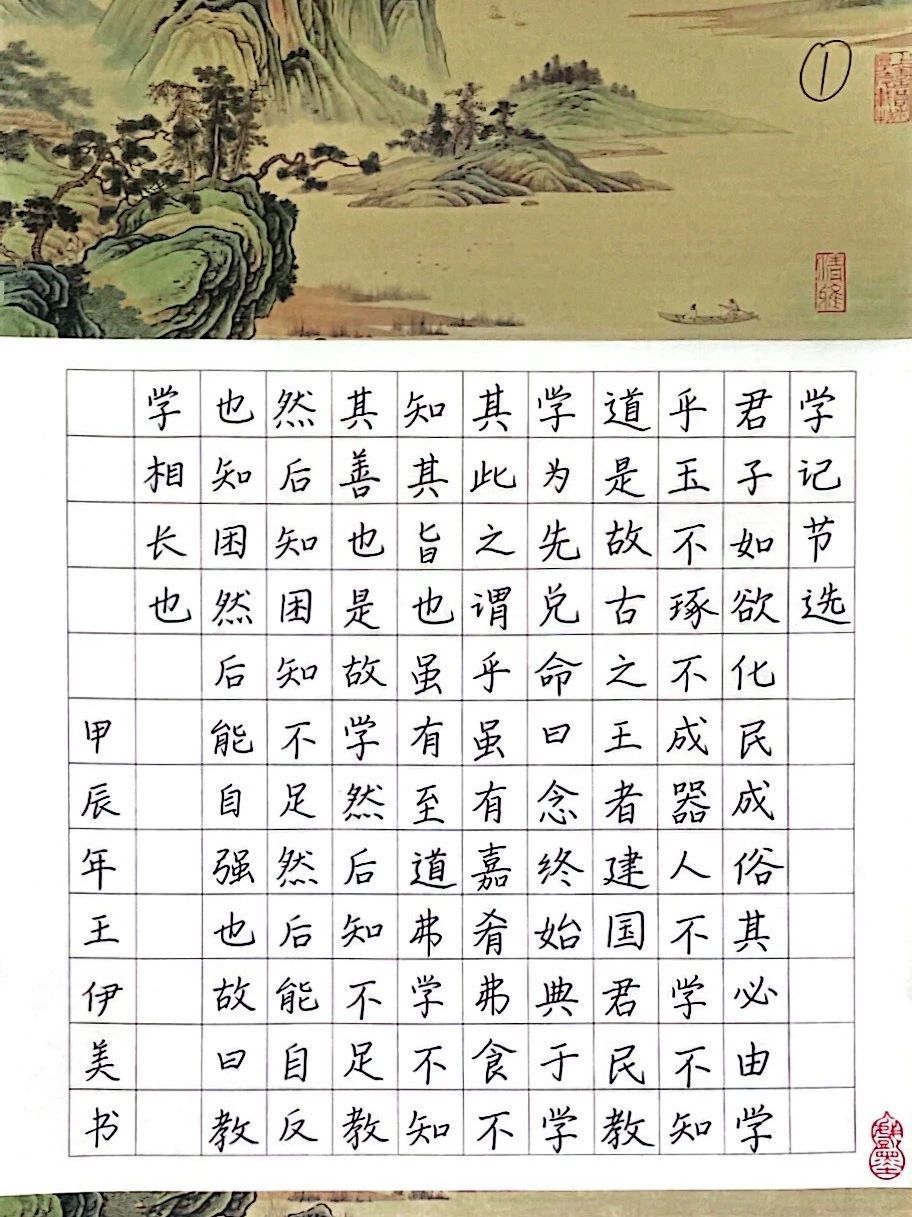 ①
清雅
学记节选
君子如欲化民成俗其必由学
乎玉不琢不成器人不学不知
道是故古之王者建国君民教
学为先兑命曰念终始典于学
其此之谓乎虽有嘉肴弗食不
知其旨也虽有至道弗学不知
其善也是故学然后知不足教
然后知困知不足然后能自反
也知困然后能自强也故曰教
学相长也
甲辰年王伊美书